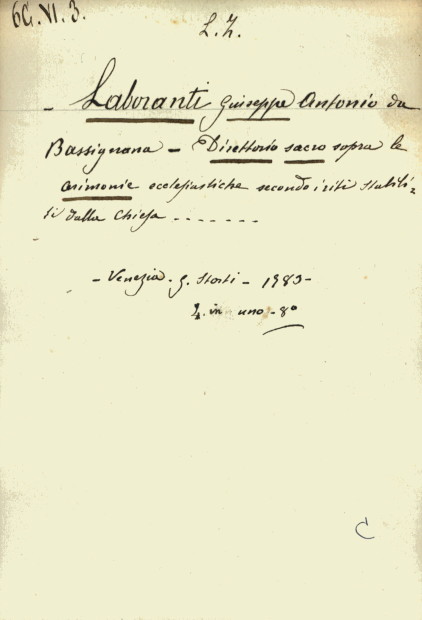 6G.VI.3.
L.Z.
- Laboranti Giuseppe Antonio da
Bassignana - Direttorio sacro sopra le
cerimonie ecclesiastiche secondo i riti stabili=
ti dalla Chiesa . . . . . . .
- Venezia. G. Storti - 1783 -
in uno - 8°
C